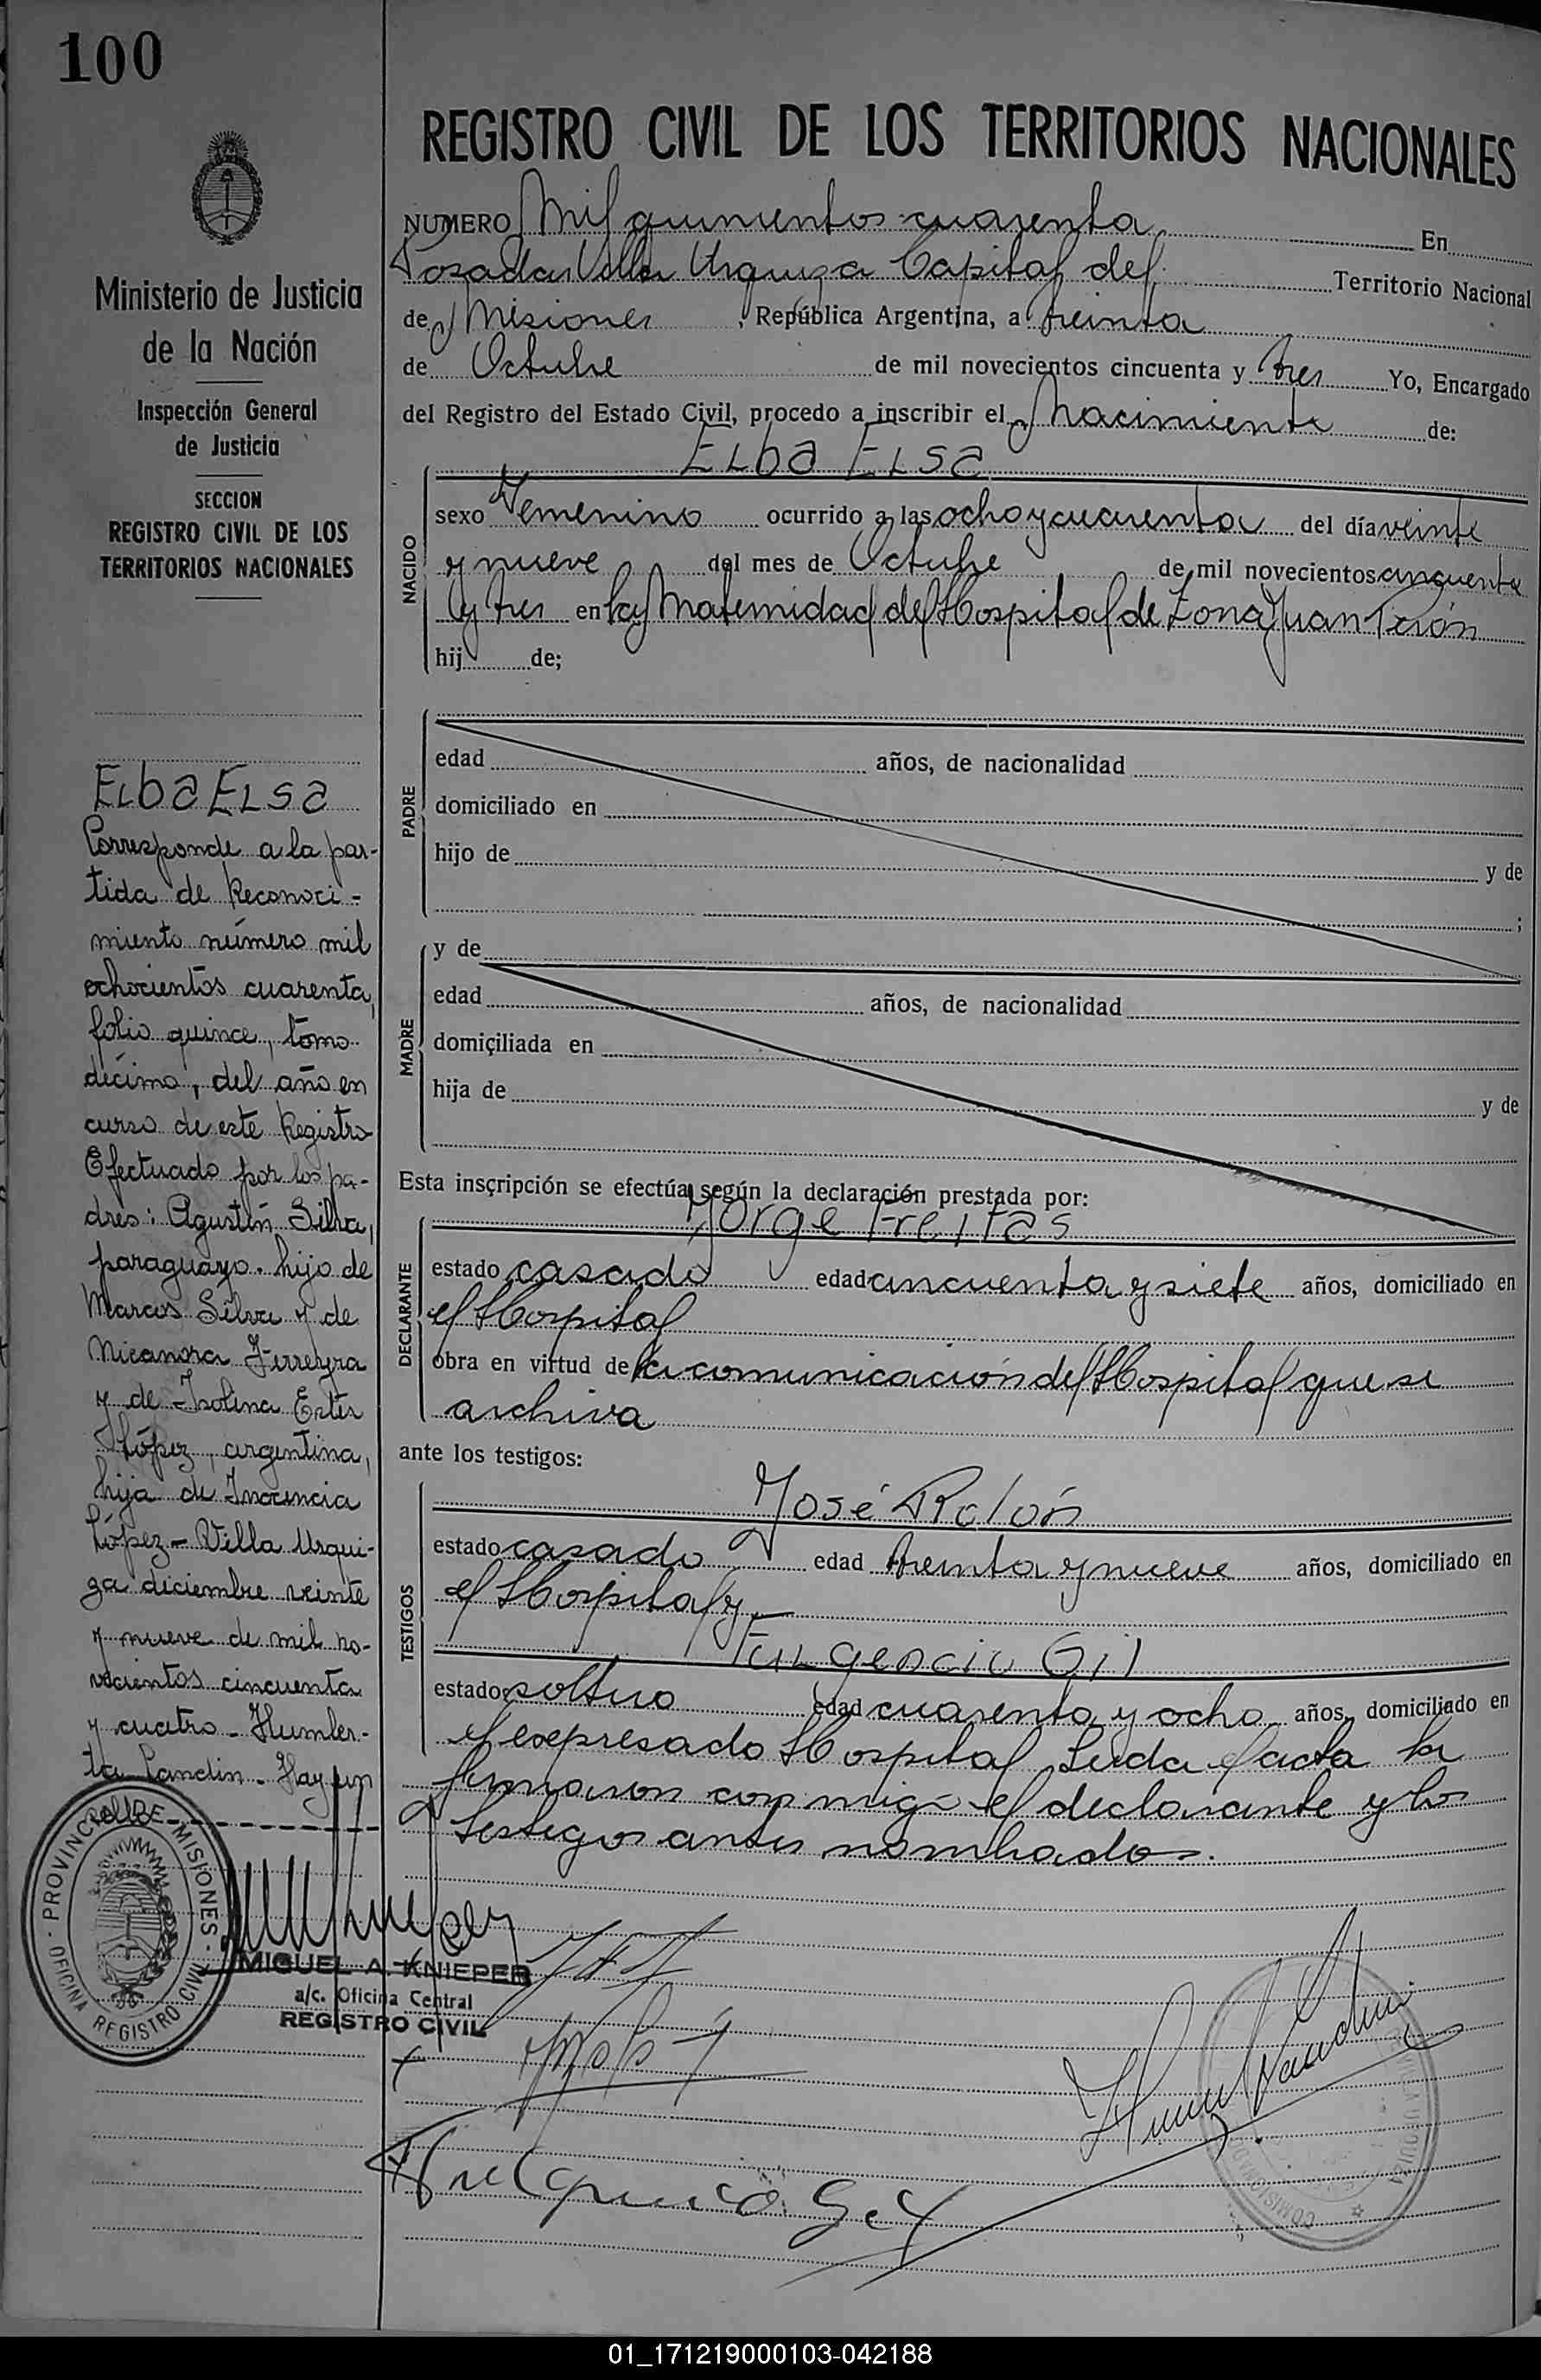 100
Ministerio de Justicia
de la Nación
Inspección General
de Justicia
SECCION
REGISTRO CIVIL DE LOS
TERRITORIOS NACIONALES
Elba Elsa
Corresponde a la par-
tida de Reconoci-
miento número mil
ochocientos cuarenta,
folio quince, tomo
décimo, del año en
curso de este Registro
Efectuado por los pa-
dres: Agustín Silva,
paraguayo. hijo de
Marcos Silva y de
Nicanora Ferreyra
y de Isolina Ester
López, argentina,
hija de Inocencia
López - Villa Urqui-
za diciembre veinte
y nueve de mil no-
vecientos cincuenta
y cuatro - Humber-
to Landin - Hay un
sello
PROVINCIA DE MISIONES
OFICINA REGISTRO CIVIL
MIGUEL A. KNIEPER
a/c. Oficina Central
REGISTRO CIVIL
REGISTRO CIVIL DE LOS TERRITORIOS NACIONALES
NUMERO Mil quinientos cuarenta En
Posadas Villa Urquiza Capital del Territorio Nacional
de Misiones, República Argentina, a treinta
de Octubre de mil novecientos cincuenta y tres Yo, Encargado
del Registro del Estado Civil, procedo a inscribir el Nacimiento de:
Elba Elsa
NACIDO
sexo Femenino ocurrido a las ocho y cuarenta del día veinte
y nueve del mes de Octubre de mil novecientos cincuenta
y tres en la Maternidad del Hospital de Zona Juan Perón
hij de;
PADRE
edad años, de nacionalidad
domiciliado en
hijo de y de
;
MADRE
y de
edad años, de nacionalidad
domiciliada en
hija de y de
Esta inscripción se efectúa según la declaración prestada por:
DECLARANTE
Jorge Freitas
estado casado edad cincuenta y siete años, domiciliado en
el Hospital
obra en virtud de la comunicación del Hospital que se
archiva
ante los testigos:
TESTIGOS
José Rolón
estado casado edad treinta y nueve años, domiciliado en
el Hospital y
Fulgencio Gil
estado soltero edad cuarenta y ocho años, domiciliado en
el expresado Hospital Leida el acta la
firmaron conmigo el declarante y los
testigos antes nombrados.
Fulgencio Gil
VILLA URQUIZA